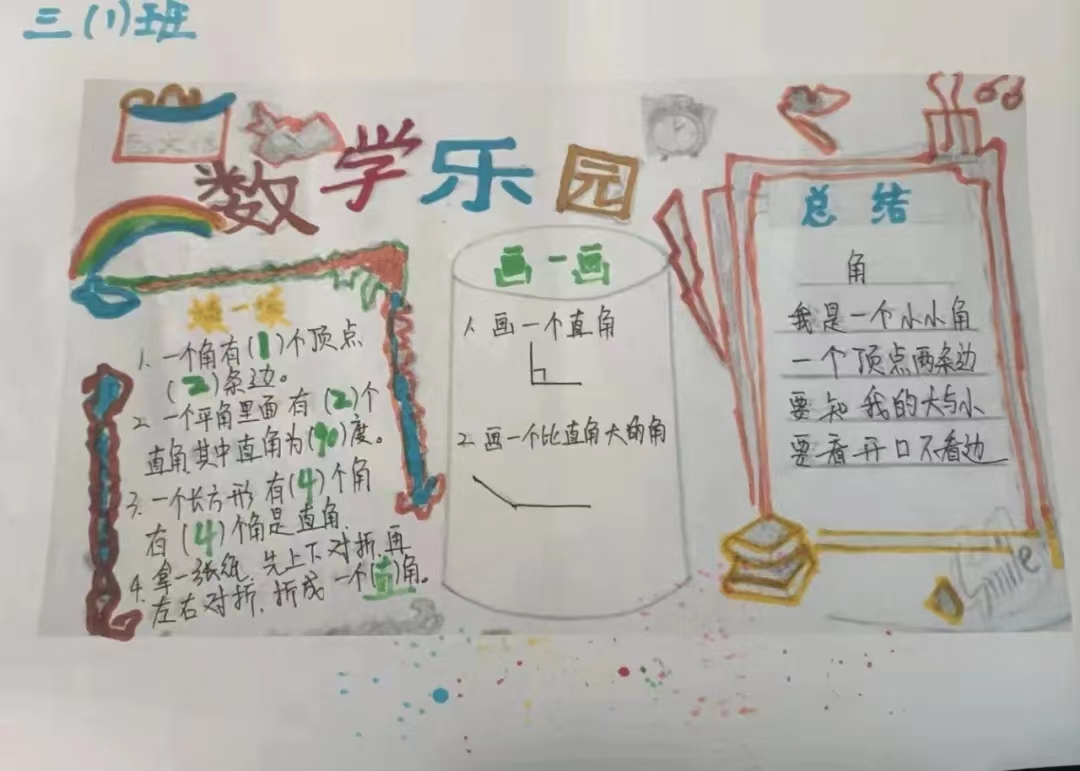 三(1)班
数学乐园
填一填
1. 一个角有(1)个顶点
(2)条边。
2. 一个平角里面有(2)个
直角其中直角为(90)度。
3. 一个长方形有(4)个角
有(4)个角是直角.
4. 拿一张纸,先上下对折,再
左右对折,折成一个(直)角。
画一画
1. 画一个直角
2. 画一个比直角大的角
总结
角
我是一个小小角
一个顶点两条边
要知我的大与小
要看开口不看边
smile